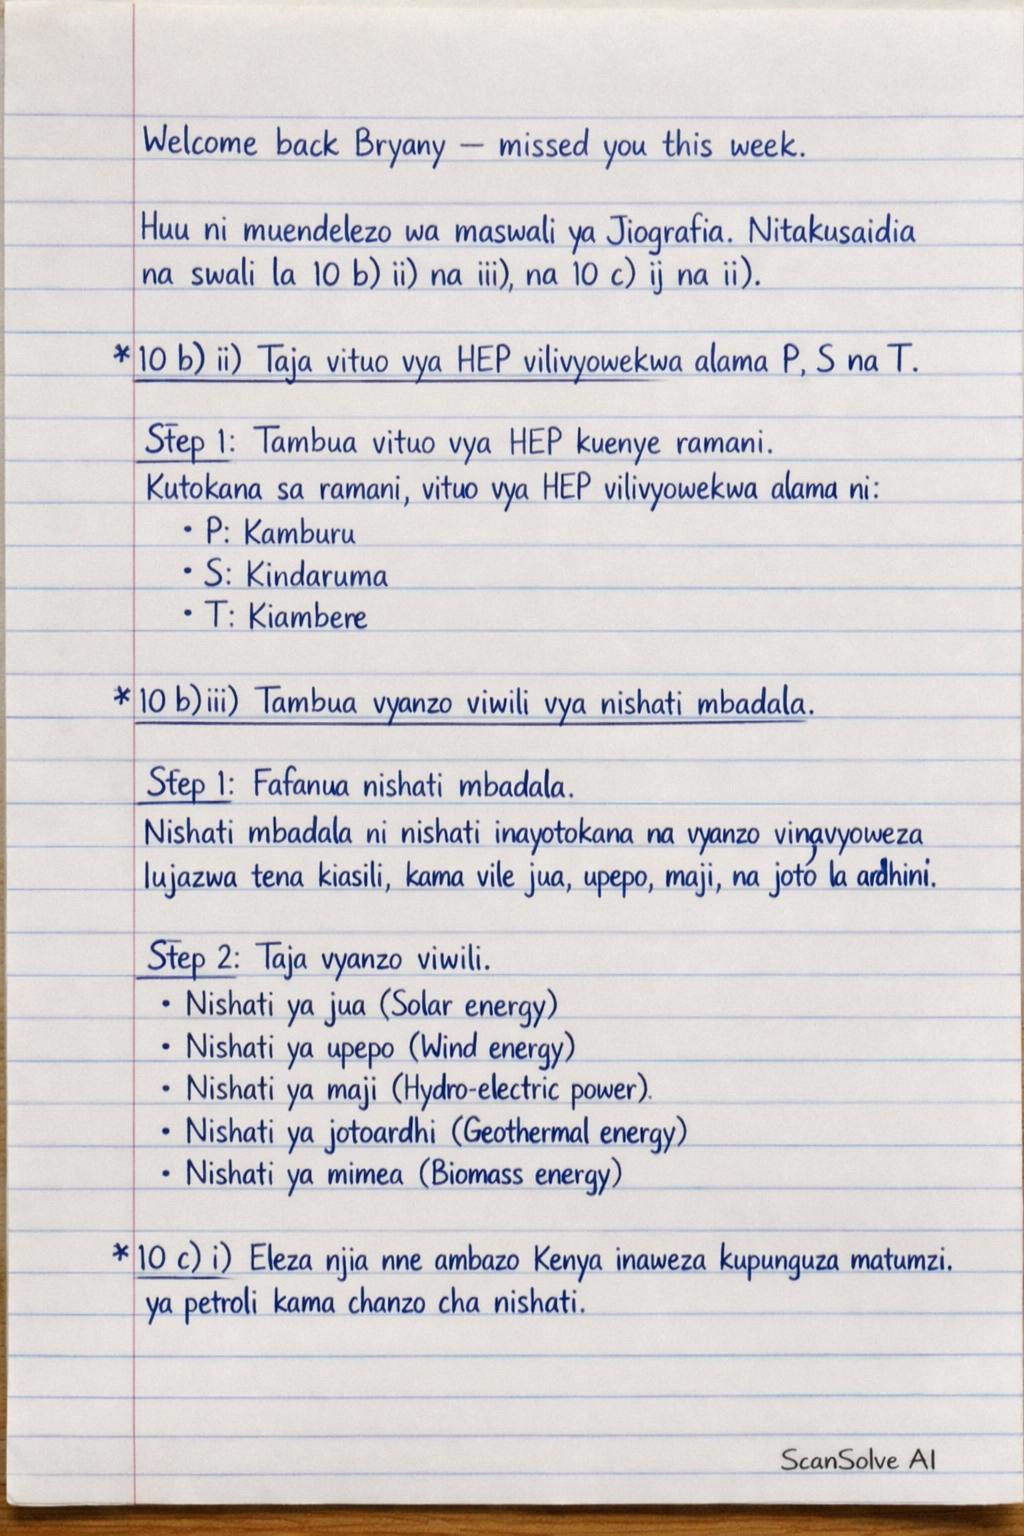 Welcome back Bryany – missed you this week.
Huu ni muendelezo wa maswali ya Jiografia. Nitakusaidia
na swali la 10 b) ii) na iii), na 10 c) ij na ii).
* 10 b) ii) Taja vituo vya HEP vilivyowekwa alama P, S na T.
Step 1: Tambua vituo vya HEP kuenye ramani.
Kutokana sa ramani, vituo vya HEP vilivyowekwa alama ni:
• P: Kamburu
• S: Kindaruma
• T: Kiambere
* 10 b) iii) Tambua vyanzo viwili vya nishati mbadala.
Step 1: Fafanua nishati mbadala.
Nishati mbadala ni nishati inayotokana na vyanzo vingavyoweza
lujazwa tena kiasili, kama vile jua, upepo, maji, na joto la ardhini.
Step 2: Taja vyanzo viwili.
• Nishati ya jua (Solar energy)
• Nishati ya upepo (Wind energy)
• Nishati ya maji (Hydro-electric power).
• Nishati ya jotoardhi (Geothermal energy)
• Nishati ya mimea (Biomass energy)
* 10 c) i) Eleza njia nne ambazo Kenya inaweza kupunguza matumzi.
ya petroli kama chanzo cha nishati.
ScanSolve AI